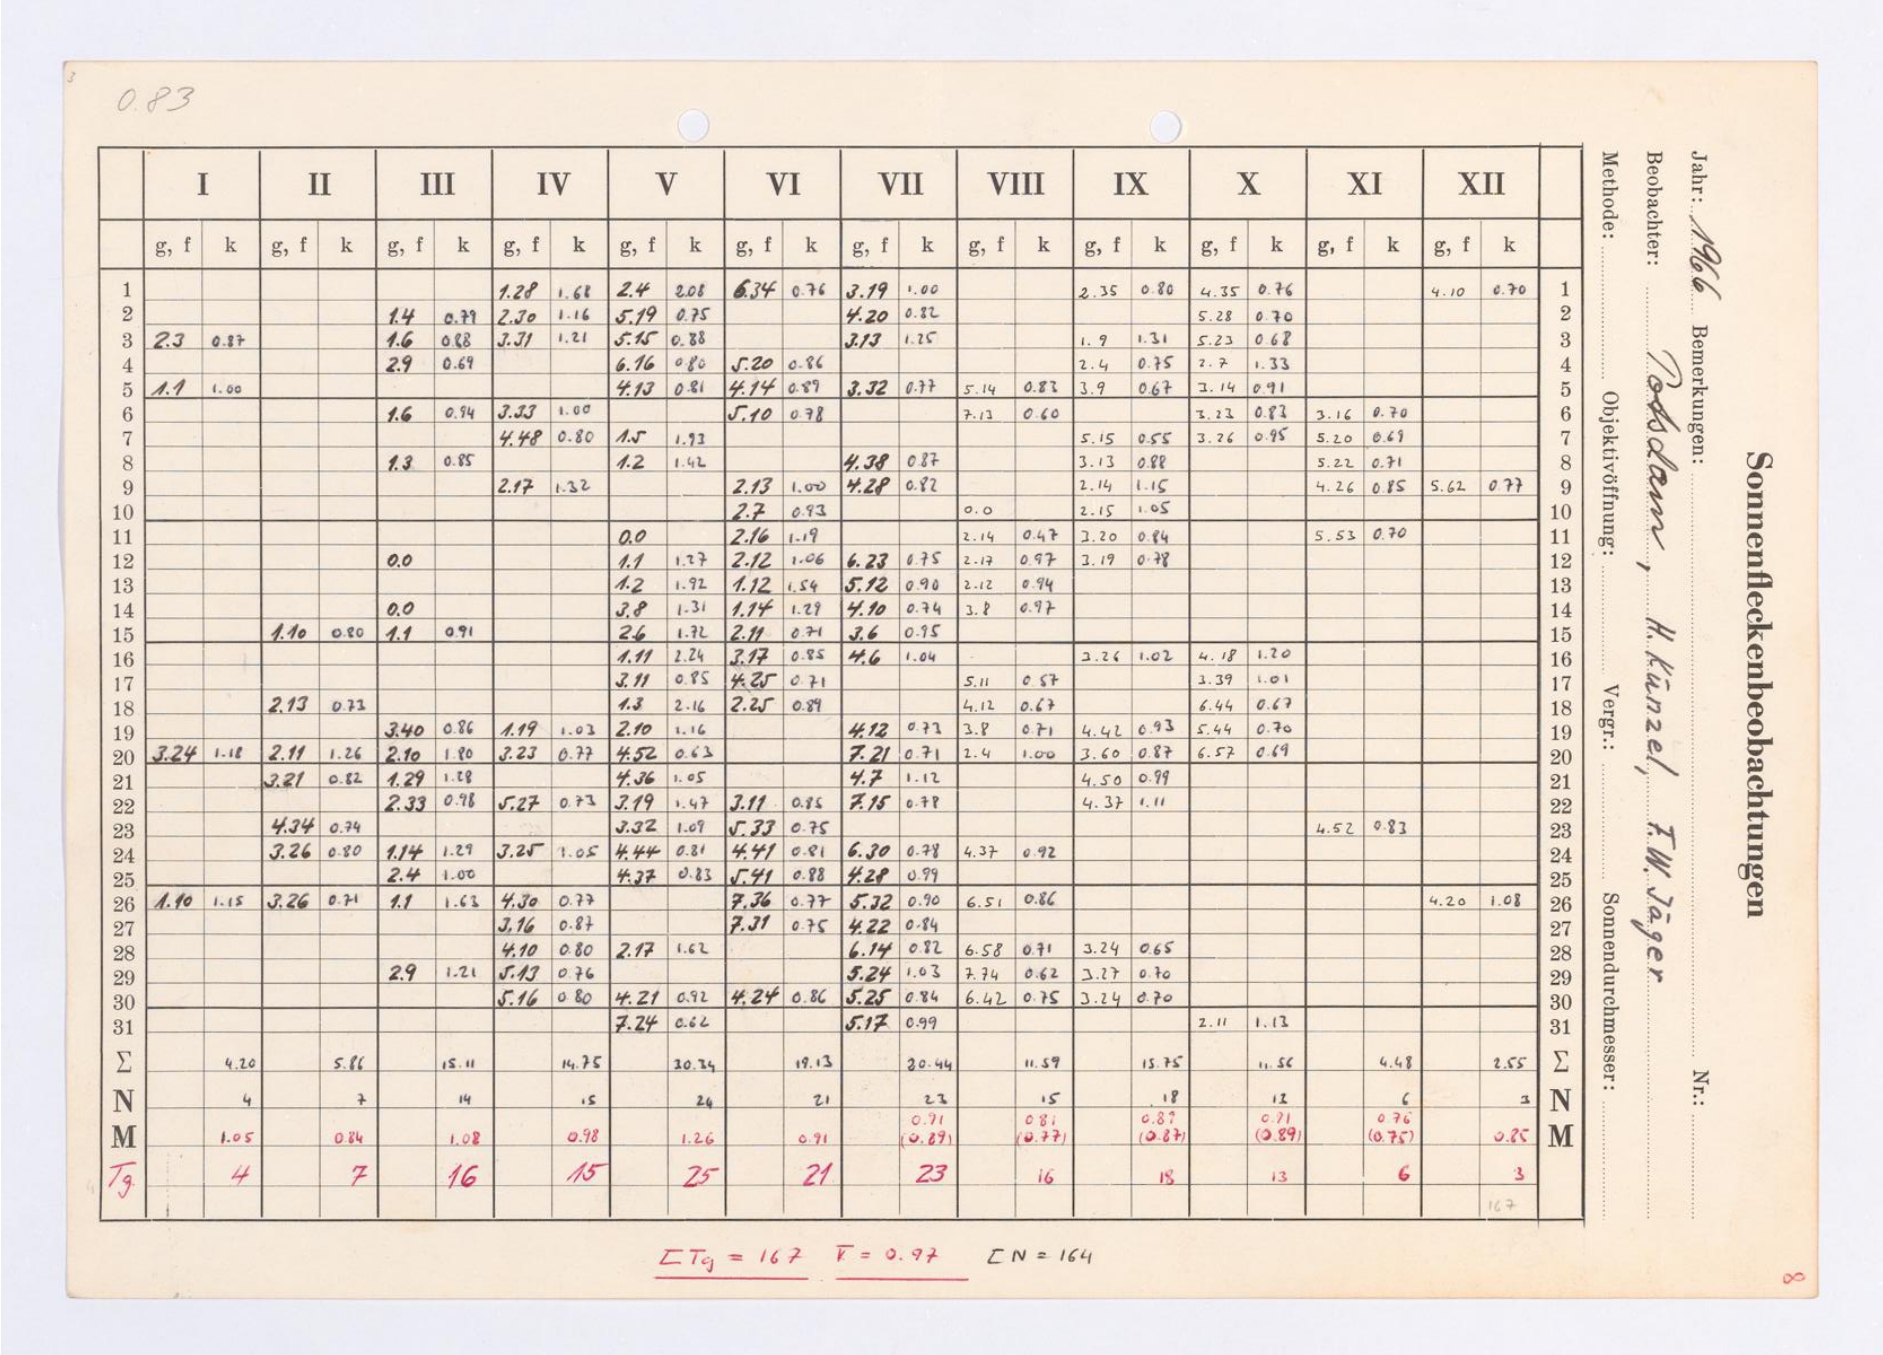 3
0.83
I II III IV V VI VII VIII IX X XI XII
g, f k g, f k g, f k g, f k g, f k g, f k g, f k g, f k g, f k g, f k g, f k g, f k
1 1.28 1.68 2.4 2.08 6.34 0.76 3.19 1.00 2.35 0.80 4.35 0.76 4.10 0.70 1
2 1.4 0.79 2.30 1.16 5.19 0.75 4.20 0.82 5.28 0.70 2
3 2.3 0.87 1.6 0.88 3.31 1.21 5.15 0.88 3.13 1.25 1.9 1.31 5.23 0.68 3
4 2.9 0.69 6.16 0.80 5.20 0.86 2.4 0.75 2.7 1.33 4
5 1.1 1.00 4.13 0.81 4.14 0.89 3.32 0.77 5.14 0.83 3.9 0.67 3.14 0.91 5
6 1.6 0.94 3.33 1.00 5.10 0.78 7.13 0.60 3.23 0.83 3.16 0.70 6
7 4.48 0.80 1.5 1.93 5.15 0.55 3.26 0.95 5.20 0.69 7
8 1.3 0.85 1.2 1.42 4.38 0.87 3.13 0.88 5.22 0.71 8
9 2.17 1.32 2.13 1.00 4.28 0.82 2.14 1.15 4.26 0.85 5.62 0.77 9
10 2.7 0.93 0.0 2.15 1.05 10
11 0.0 2.16 1.19 2.14 0.47 3.20 0.84 5.53 0.70 11
12 0.0 1.1 1.27 2.12 1.06 6.23 0.75 2.17 0.97 3.19 0.78 12
13 1.2 1.92 1.12 1.54 5.12 0.90 2.12 0.94 13
14 0.0 3.8 1.31 1.14 1.29 4.10 0.74 3.8 0.97 14
15 1.10 0.80 1.1 0.91 2.6 1.72 2.11 0.71 3.6 0.95 15
16 1.11 2.24 3.17 0.85 4.6 1.04 3.26 1.02 4.18 1.20 16
17 3.11 0.85 4.25 0.71 5.11 0.57 3.39 1.01 17
18 2.13 0.73 1.3 2.16 2.25 0.89 4.12 0.67 6.44 0.67 18
19 3.40 0.86 1.19 1.03 2.10 1.16 4.12 0.73 3.8 0.71 4.42 0.93 5.44 0.70 19
20 3.24 1.18 2.11 1.26 2.10 1.80 3.23 0.77 4.52 0.63 7.21 0.71 2.4 1.00 3.60 0.87 6.57 0.69 20
21 3.21 0.82 1.29 1.28 4.36 1.05 4.7 1.12 4.50 0.99 21
22 2.33 0.98 5.27 0.73 3.19 1.47 3.11 0.85 7.15 0.78 4.37 1.11 22
23 4.34 0.74 3.32 1.09 5.33 0.75 4.52 0.83 23
24 3.26 0.80 1.14 1.29 3.25 1.05 4.44 0.81 4.41 0.81 6.30 0.78 4.37 0.92 24
25 2.4 1.00 4.37 0.83 5.41 0.88 4.28 0.99 25
26 1.10 1.15 3.26 0.71 1.1 1.63 4.30 0.77 7.36 0.77 5.32 0.90 6.51 0.86 4.20 1.08 26
27 3.16 0.87 7.31 0.75 4.22 0.84 27
28 4.10 0.80 2.17 1.62 6.14 0.82 6.58 0.71 3.24 0.65 28
29 2.9 1.21 5.13 0.76 5.24 1.03 7.74 0.62 3.27 0.70 29
30 5.16 0.80 4.21 0.92 4.24 0.86 5.25 0.84 6.42 0.75 3.24 0.70 30
31 7.24 0.62 5.17 0.99 2.11 1.13 31
Σ 4.20 5.86 15.11 14.75 30.34 19.13 20.44 11.59 15.75 11.56 4.48 2.55 Σ
N 4 7 14 15 24 21 23 15 18 12 6 3 N
0.91 0.81 0.89 0.91 0.76
M 1.05 0.84 1.08 0.98 1.26 0.91 (0.89) (0.77) (0.87) (0.89) (0.75) 0.85 M
Tg 4 7 16 15 25 21 23 16 18 13 6 3
167
ΣTg = 167 k̅ = 0.97 ΣN = 164
8
Sonnenfleckenbeobachtungen
Jahr: 1966 Bemerkungen: Nr.:
Beobachter: Potsdam, H. Künzel, F.W. Jäger
Methode: Objektivöffnung: Vergr.: Sonnendurchmesser: